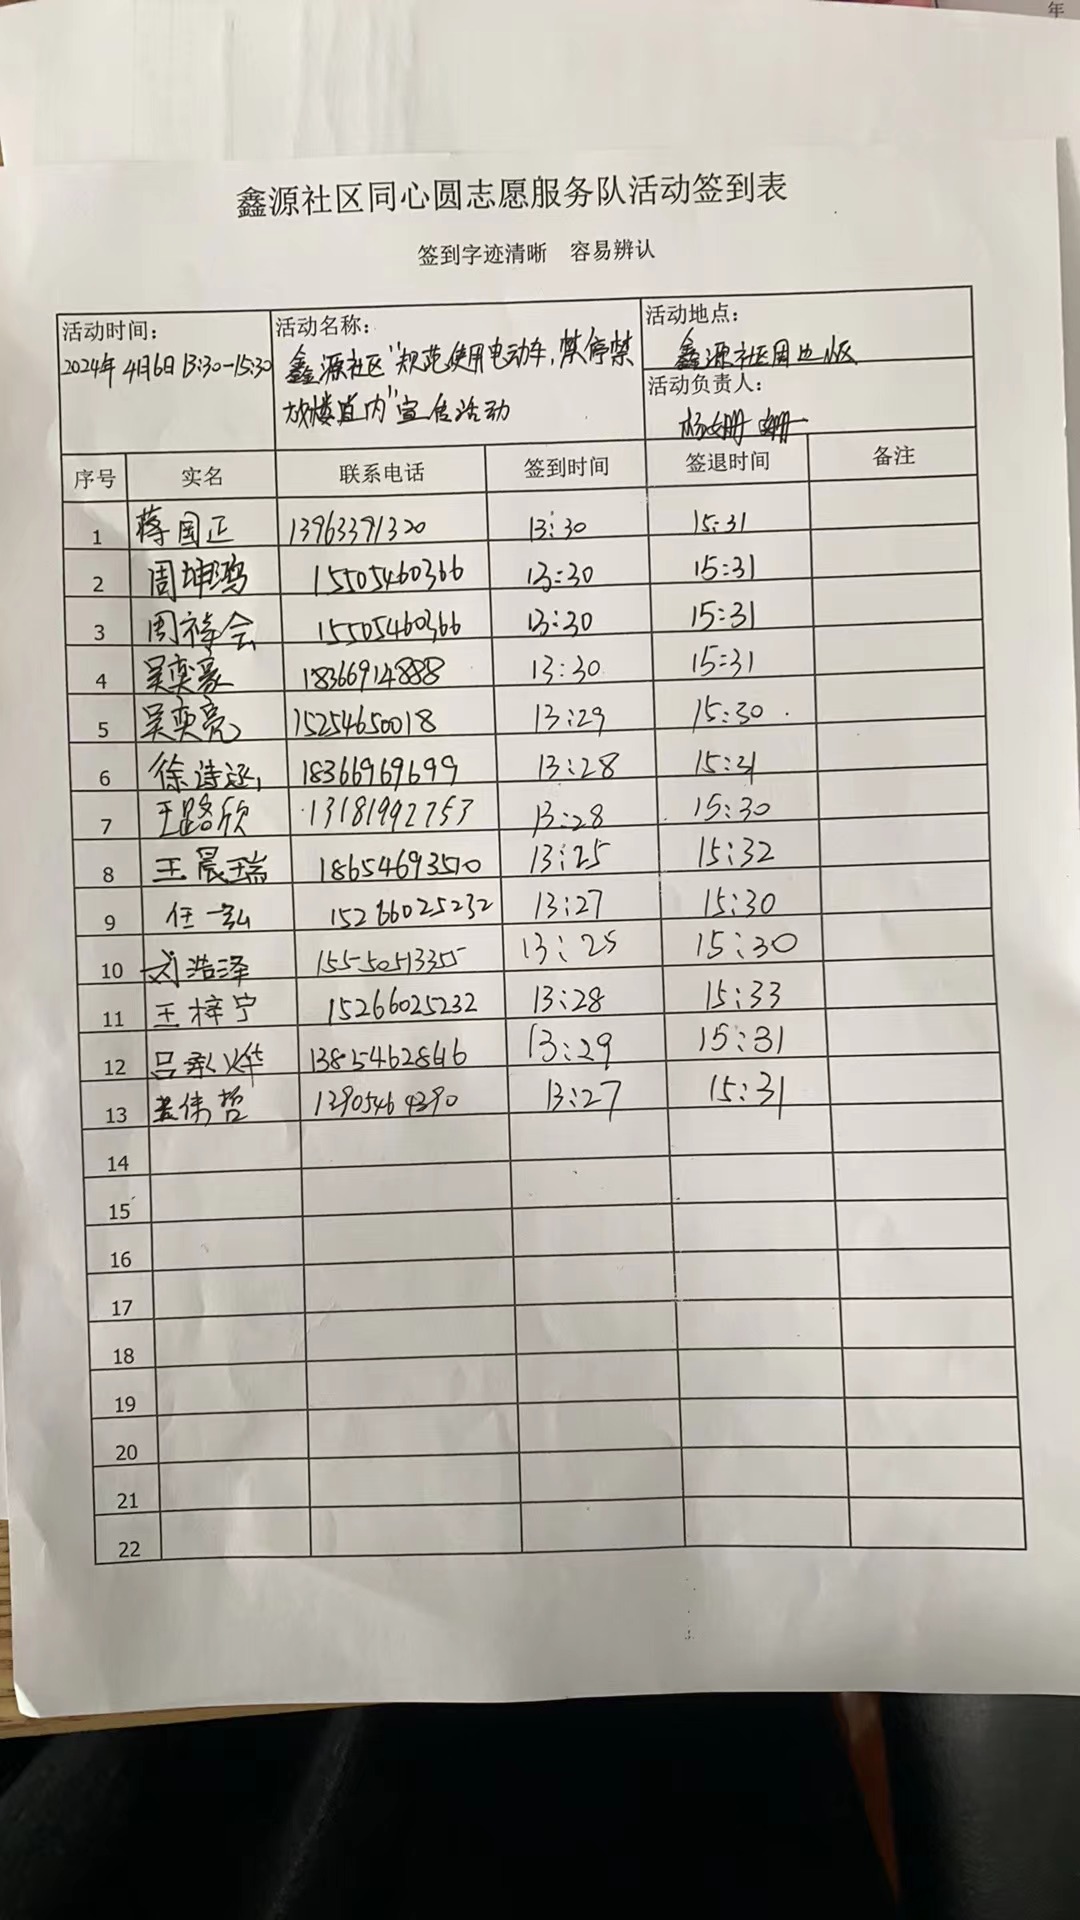 年
鑫源社区同心圆志愿服务队活动签到表
签到字迹清晰 容易辨认
活动时间: 活动名称: 活动地点:
2024年4月6日13:30-15:30 鑫源社区"规范使用电动车,禁停禁 鑫源社区周边小区
放楼道内"宣传活动 活动负责人:
杨姗姗
序号 实名 联系电话 签到时间 签退时间 备注
1 蒋国正 13963391320 13:30 15:31
2 周坤鸿 15505460366 13:30 15:31
3 周祥会 15505460366 13:30 15:31
4 吴奕豪 18366914888 13:30 15:31
5 吴奕亮 15254650018 13:29 15:30
6 徐诗涵 18366969699 13:28 15:31
7 王路欣 13181992753 13:28 15:30
8 王晨瑞 18654693510 13:25 15:32
9 任一弘 15266025232 13:27 15:30
10 刘浩泽 15550513355 13:25 15:30
11 王梓宁 15266025232 13:28 15:33
12 吕承烨 13854628646 13:29 15:31
13 伟哲 13905464390 13:27 15:31
14
15
16
17
18
19
20
21
22